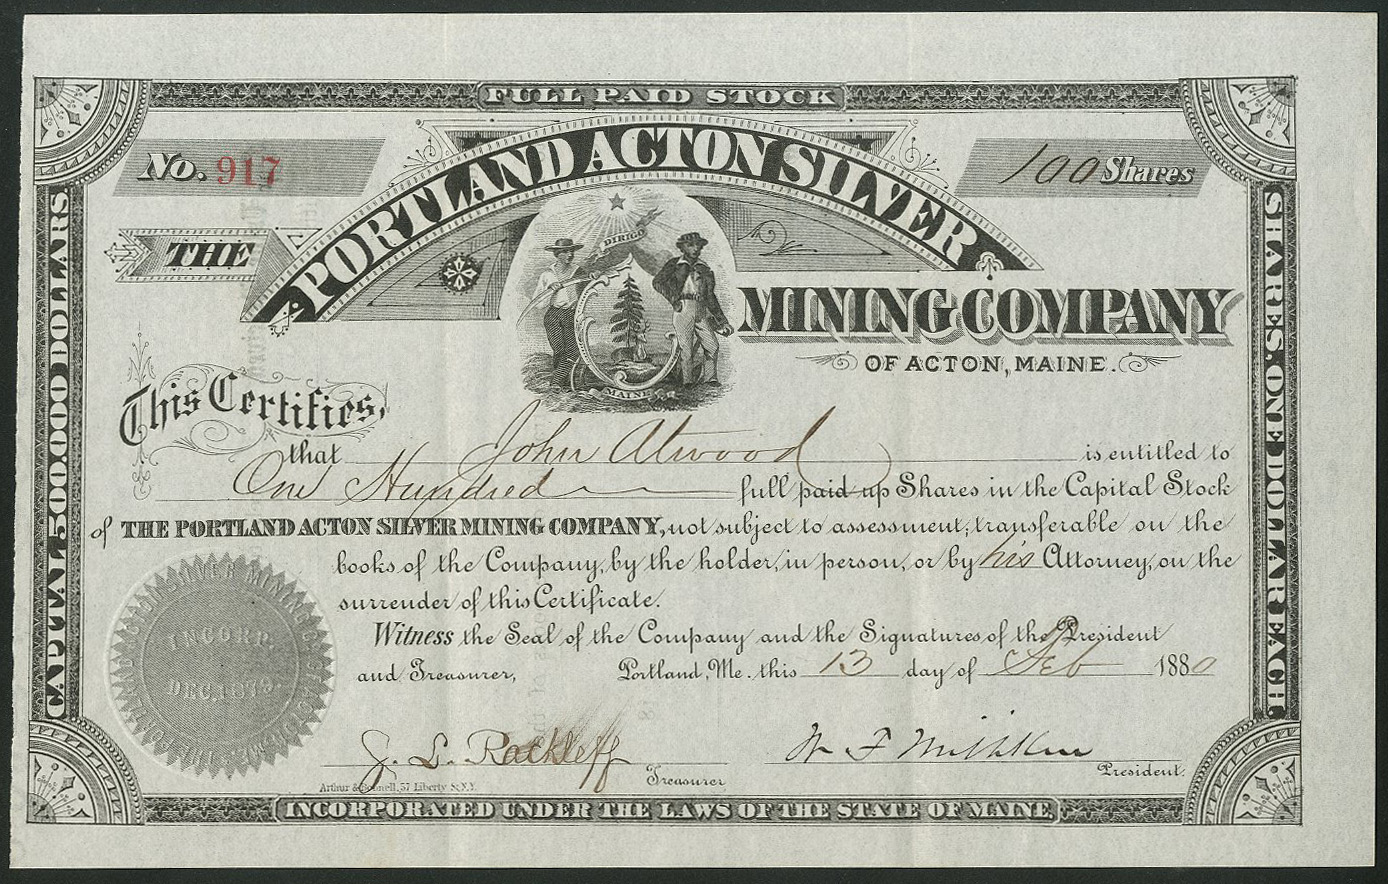 FULL PAID STOCK
No. 917
100 Shares
THE
PORTLAND ACTON SILVER
MINING COMPANY
OF ACTON, MAINE.
DIRIGO
MAINE
This Certifies,
that John Atwood is entitled to
One Hundred full paid up Shares in the Capital Stock
of THE PORTLAND ACTON SILVER MINING COMPANY, not subject to assessment; transferable on the
books of the Company, by the holder, in person, or by his Attorney, on the
surrender of this Certificate.
Witness the Seal of the Company and the Signatures of the President
and Treasurer, Portland, Me. this 13 day of Feb 1880
INCORP.
J. L. Rackleff
Treasurer
W F Milliken
President.
Arthur & Bonnell, 57 Liberty St. N.Y.
CAPITAL 500,000 DOLLARS.
SHARES, ONE DOLLAR EACH.
INCORPORATED UNDER THE LAWS OF THE STATE OF MAINE